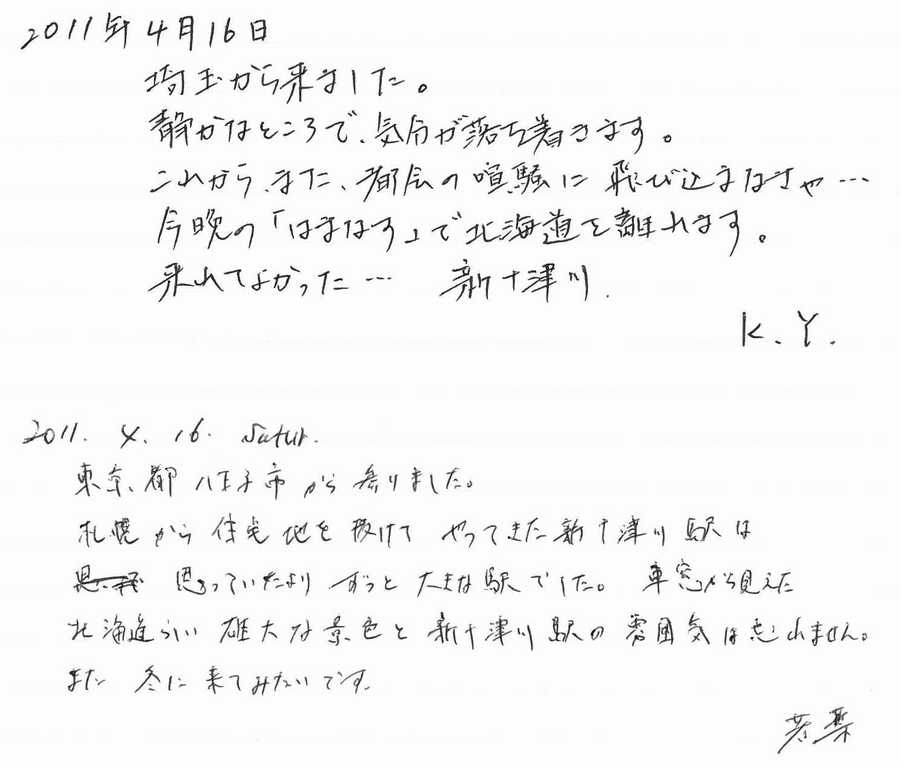 2011年4月16日
埼玉から来ました。
静かなところで、気分が落ち着きます。
これから、また、都会の喧騒に飛び込まなきゃ…
今晩の「はまなす」で北海道を離れます。
来れてよかった… 新十津川.
K.Y.
2011. 4. 16. Satur.
東京都八王子市から参りました。
札幌から住宅地を抜けてやってきた新十津川駅は
思っていたよりずっと大きな駅でした。車窓から見えた
北海道らしい雄大な景色と新十津川駅の雰囲気は忘れません。
また冬に来てみたいです。
若葉